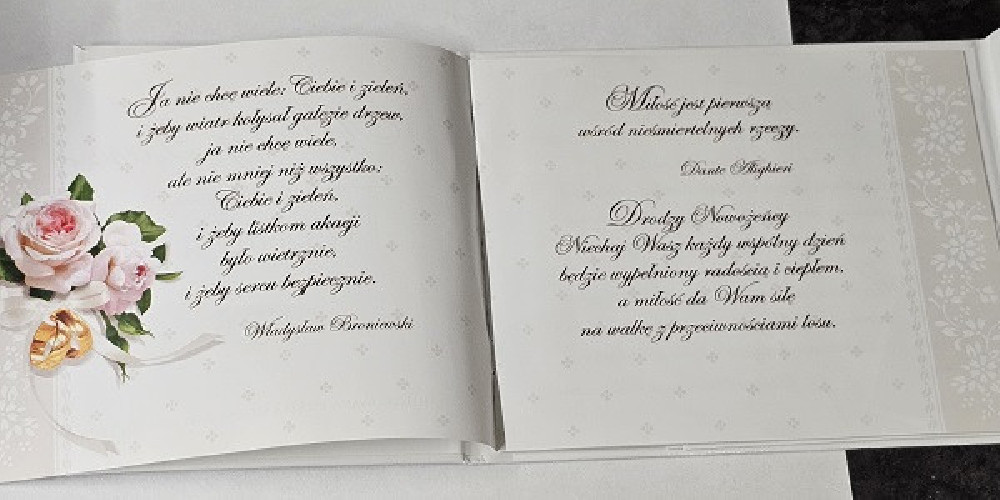 Ja nie chcę wiele: Ciebie i zieleń,
i żeby wiatr kołysał gałęzie drzew,
ja nie chcę wiele,
ale nie mniej niż wszystko:
Ciebie i zieleń,
i żeby listkom akacji
było wietrznie,
i żeby sercu bezpiecznie.
Władysław Broniewski
Miłość jest pierwszą
wśród nieśmiertelnych rzeczy.
Dante Alighieri
Drodzy Nowożeńcy
Niechaj Wasz każdy wspólny dzień
będzie wypełniony radością i ciepłem,
a miłość da Wam siłę
na walkę z przeciwnościami losu.